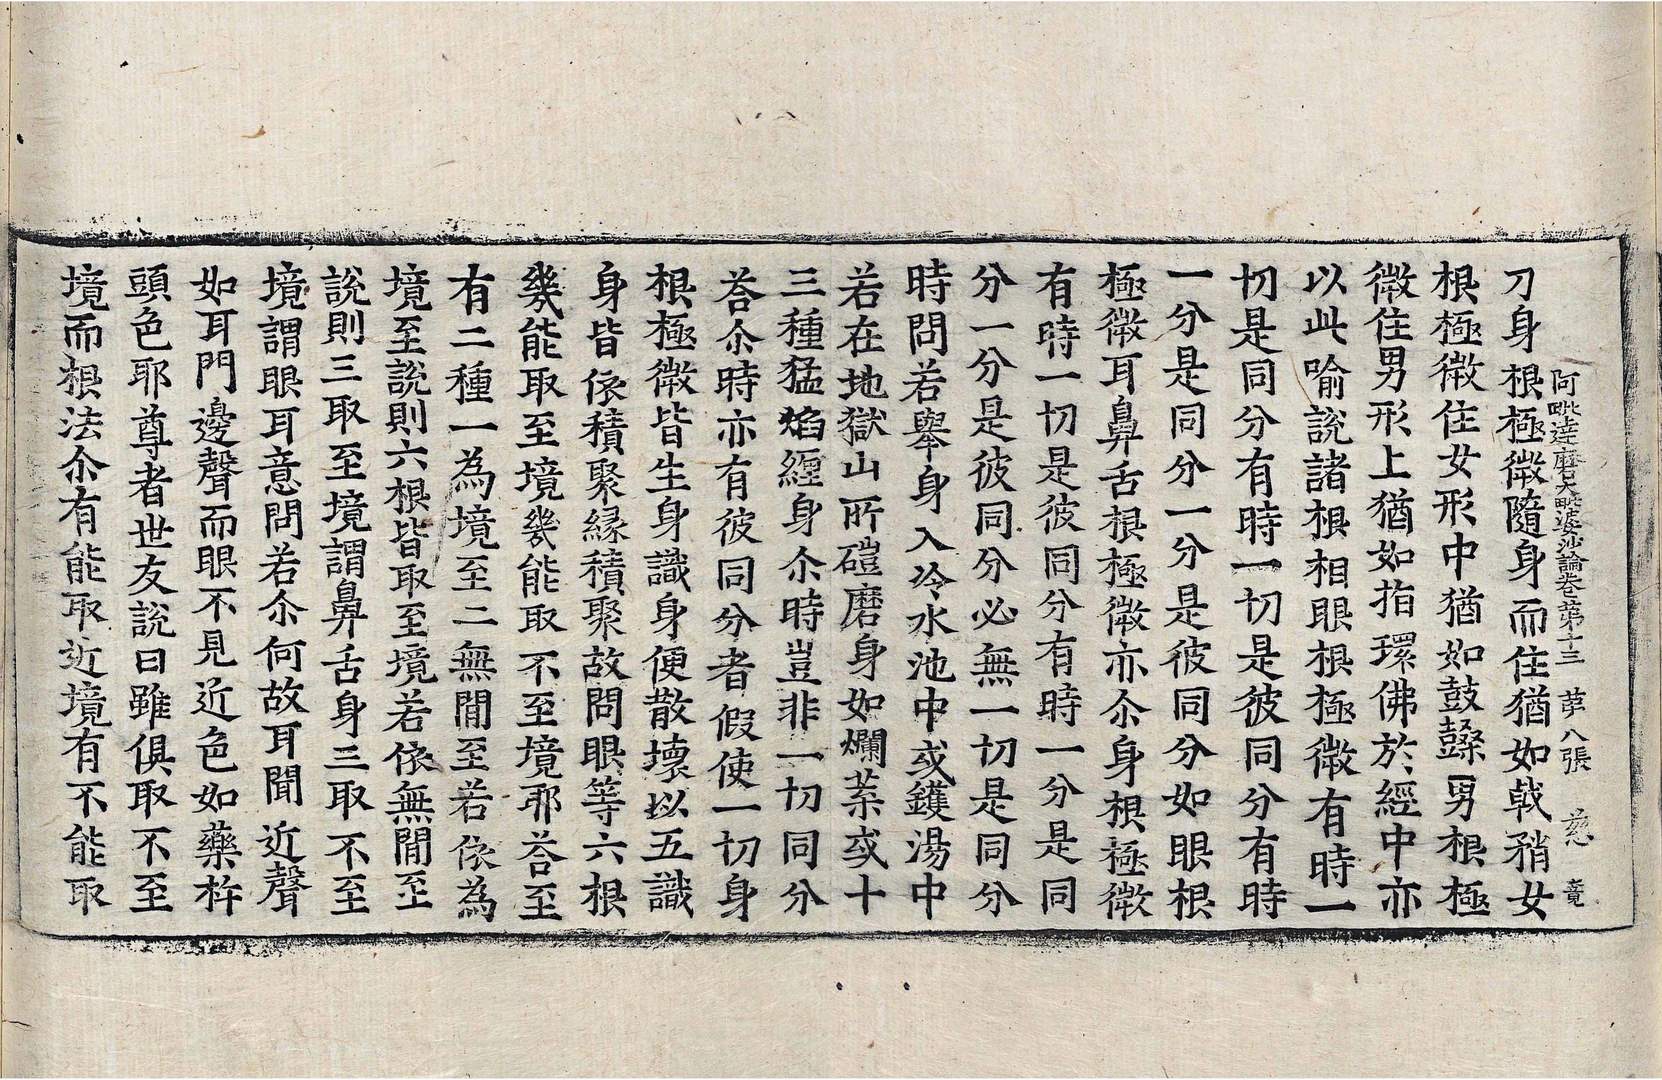 阿毗達磨大毗婆沙論卷第十三 第八張 慈
刀身根極微隨身而住猶如戟矟女
根極微住女形中猶如鼓𣞙男根極
微住男形上猶如指環佛於經中亦
以此喻說諸根相眼根極微有時一
切是同分有時一切是彼同分有時
一分是同分一分是彼同分如眼根
極微耳鼻舌根極微亦尒身根極微
有時一切是彼同分有時一分是同
分一分是彼同分必無一切是同分
時問若舉身入冷水池中或鑊湯中
若在地獄山所磑磨身如爛葉或十
三種猛焰纏身尒時豈非一切同分
荅尒時亦有彼同分者假使一切身
根極微皆生身識身便散壞以五識
身皆依積聚緣積聚故問眼等六根
幾能取至境幾能取不至境耶荅至
有二種一為境至二無閒至若依為
境至說則六根皆取至境若依無閒至
說則三取至境謂鼻舌身三取不至
境謂眼耳意問若尒何故耳聞近聲
如耳門邊聲而眼不見近色如藥杵
頭色耶尊者世友說曰雖俱取不至
境而根法尒有能取近境有不能取